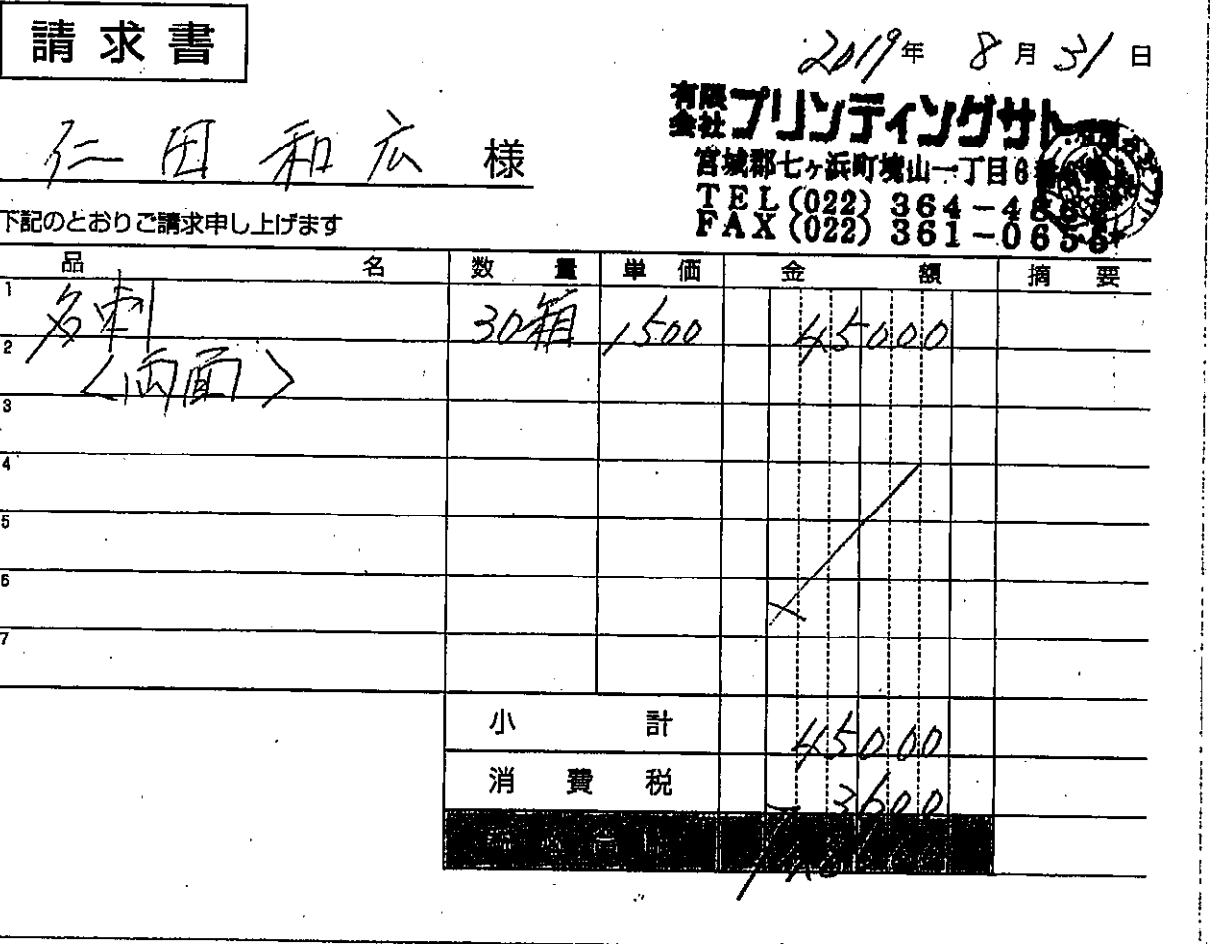 請求書
2019年 8月31日
有限会社プリンティングサト
仁田和広 様
宮城郡七ヶ浜町境山一丁目6
TEL(022)364-4
FAX(022)361-0656
下記のとおりご請求申し上げます
品名 数量 単価 金額 摘要
1 名刺 30箱 1,500 45000
2 〈両面〉
3
4
5
6
7
小計 45000
消費税 3600